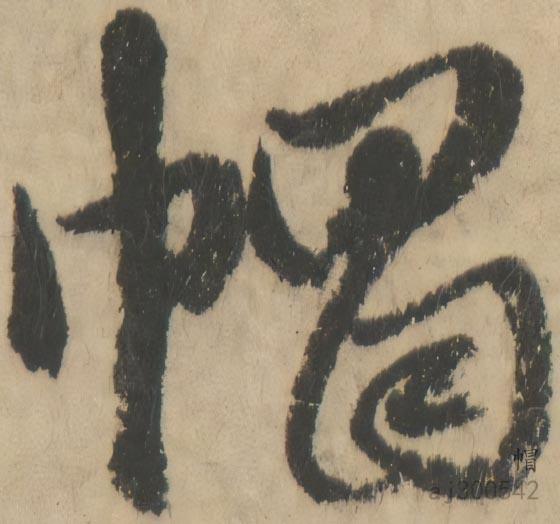 帽
帽
aj300542